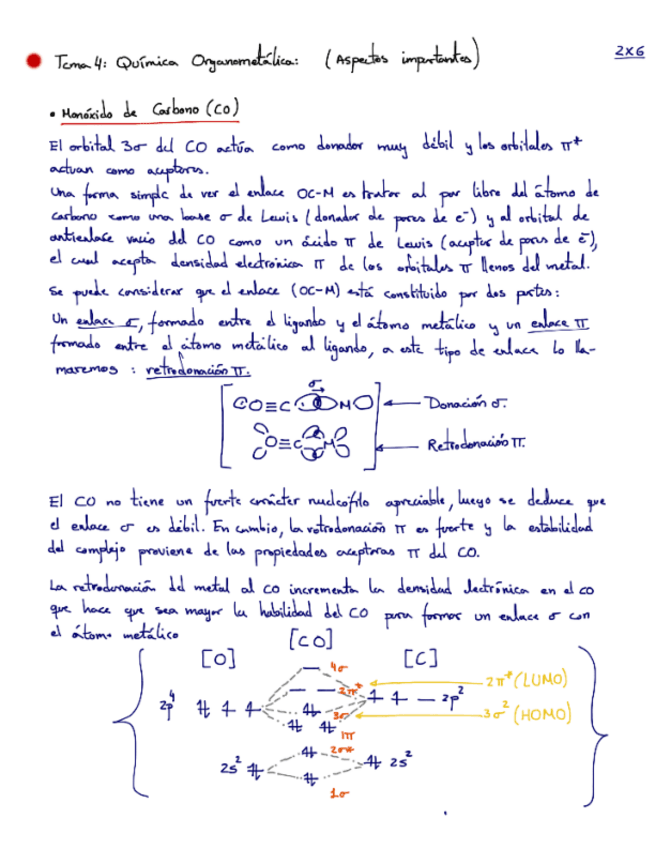 Tema 4: Química Organometálica: (Aspectos importantes)
2x6
• Monóxido de Carbono (CO)
El orbital 3σ del CO actúa como donador muy débil y los orbitales π*
actuan como aceptores.
Una forma simple de ver el enlace OC-M es tratar al par libre del átomo de
Carbono como una base σ de Lewis (donador de pares de e⁻) y al orbital de
antienlace vacio del CO como un ácido π de Lewis (aceptor de pares de e⁻),
el cual acepta densidad electrónica π de los orbitales π llenos del metal.
Se puede considerar que el enlace (OC-M) está constituido por dos partes:
Un enlace σ, formado entre el ligando y el átomo metálico y un enlace π
formado entre el átomo metálico al ligando, a este tipo de enlace lo lla-
maremos : retrodonación π.
σ
O≡C M
Donación σ.
O≡C M
Retrodonación π.
El CO no tiene un fuerte carácter nucleófilo apreciable, luego se deduce que
el enlace σ es débil. En cambio, la retrodonación π es fuerte y la estabilidad
del complejo proviene de las propiedades aceptoras π del CO.
La retrodonación del metal al CO incrementa la densidad electrónica en el CO
que hace que sea mayor la habilidad del CO para formar un enlace σ con
el átomo metálico
[CO]
[O] [C]
4σ
2π* (LUMO)
2π*
2p⁴ 2p²
3σ
3σ² (HOMO)
1π
2σ*
2s² 2s²
1σ